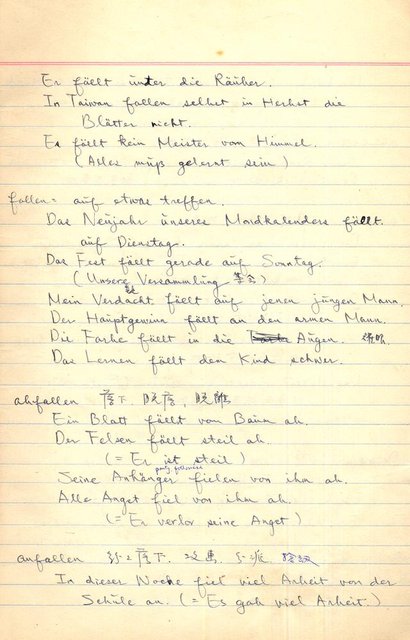 Er fällt unter die Räuber.
In Taiwan fallen selbst in Herbst die
Blätter nicht.
Es fällt kein Meister vom Himmel.
(Alles muß gelernt sein)
fallen = auf etwas treffen.
Das Neujahr unseres Mondkalenders fällt
auf Dienstag.
Das Fest fällt gerade auf Sonntag.
(Unsere Versammlung)
Mein Verdacht fällt auf jenen jungen Mann.
Der Hauptgewinn fällt an den armen Mann.
Die Farbe fällt in die Augen.
Das Lernen fällt dem Kind schwer.
abfallen 落下, 脱落, 脱離
Ein Blatt fällt vom Baum ab.
Der Felsen fällt steil ab.
(= Er ist steil)
Seine Anhänger fielen von ihm ab.
Alle Angst fiel von ihm ab.
(= Er verlor seine Angst)
anfallen
In dieser Woche fiel viel Arbeit von der
Schule an. (= Es gab viel Arbeit.)